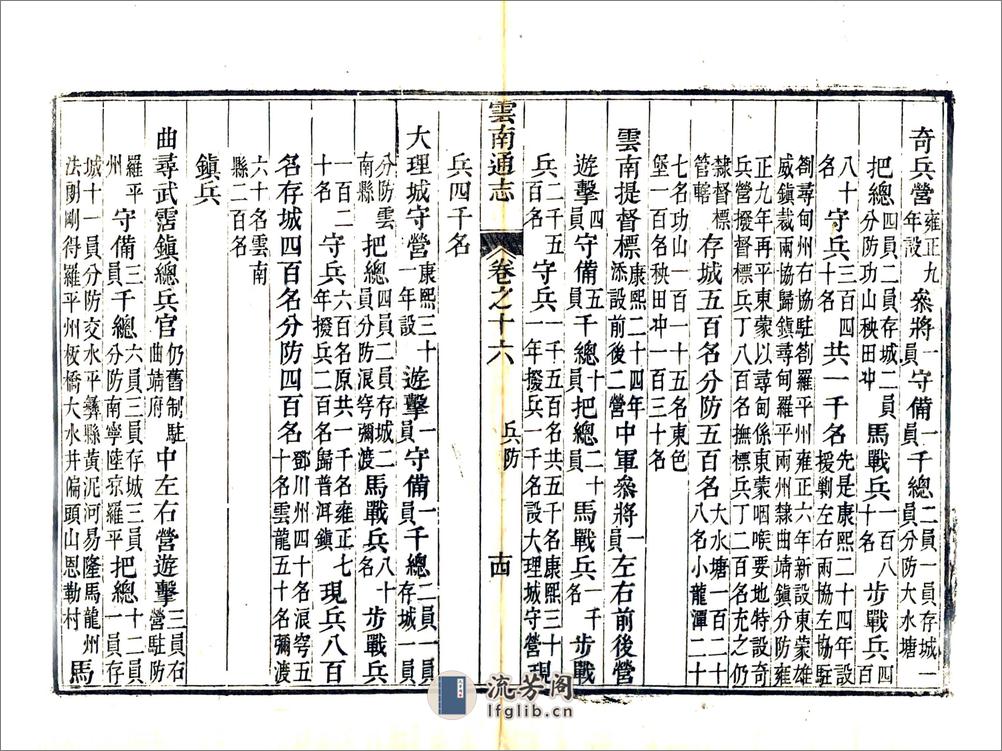 奇兵營雍正九年設叅將一員守備一員千總二員一員存城一員分防大水塘
把總四員二員存城二員分防功山秧田冲馬戰兵一百八十名步戰兵四百
八十名守兵三百四十名共一千名先是康熙二十四年設援剿左右兩協左協駐
劄尋甸州右協駐劄羅平州雍正六年新設東蒙雄威鎮裁兩協歸鎮尋甸羅平兩州隸曲靖鎮分防雍
正九年再平東蒙以尋甸係東蒙咽喉要地特設奇兵營撥督標兵丁八百名撫標兵丁二百名充之仍
隸督標管轄存城五百名分防五百名大水塘一百二十八名小龍潭二十
七名功山一百一十五名東色堡一百名秧田冲一百三十名
雲南提督標康熙二十四年添設前後二營中軍叅將一員左右前後營
遊擊四員守備五員千總十員把總二十員馬戰兵一千名步戰
兵二千五百名守兵一千五百名共五千名康熙三十一年撥兵一千名設大理城守營現
兵四千名
雲南通志
卷之十六
兵防
十四
大理城守營康熙三十一年設遊擊一員守備一員千總二員一員存城一員
分防雲南縣把總四員二員存城二員分防浪穹彌渡馬戰兵八十名步戰兵
一百二十名守兵六百名原共一千名雍正七年撥兵二百名歸普洱鎮現兵八百
名存城四百名分防四百名鄧川州四十名浪穹五十名雲龍五十名彌渡
六十名雲南縣二百名
鎮兵
曲尋武霑鎮總兵官仍舊制駐曲靖府中左右營遊擊三員右營駐防
羅平州守備三員千總六員三員存城三員分防南寧陸凉羅平把總十二員一員存
城十一員分防交水平彝縣黃泥河易隆馬龍州法剛得羅平州板橋大水井偏頭山恩勒村馬
流芳阁
lfglib.cn